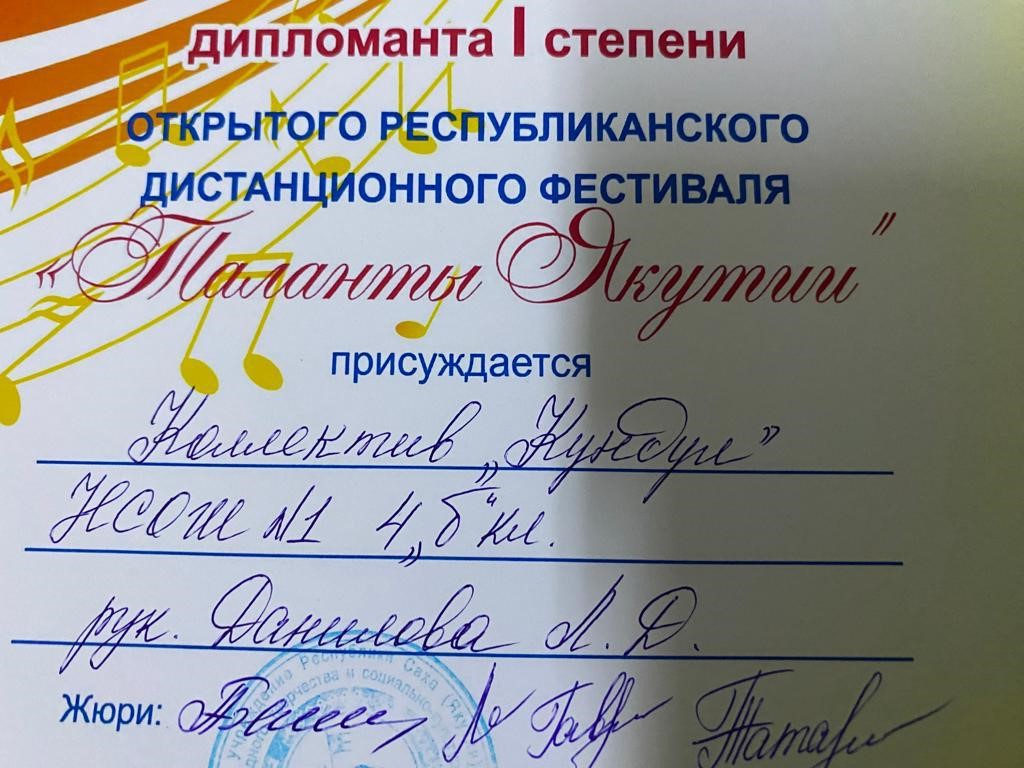 дипломанта I степени
ОТКРЫТОГО РЕСПУБЛИКАНСКОГО
ДИСТАНЦИОННОГО ФЕСТИВАЛЯ
«Таланты Якутии"
присуждается
Коллектив „Кундул”
НСОШ №1 4„б“ кл.
рук. Данилова Л. Д.
Жюри:
Республики Саха (Якутия)
творчества и социально